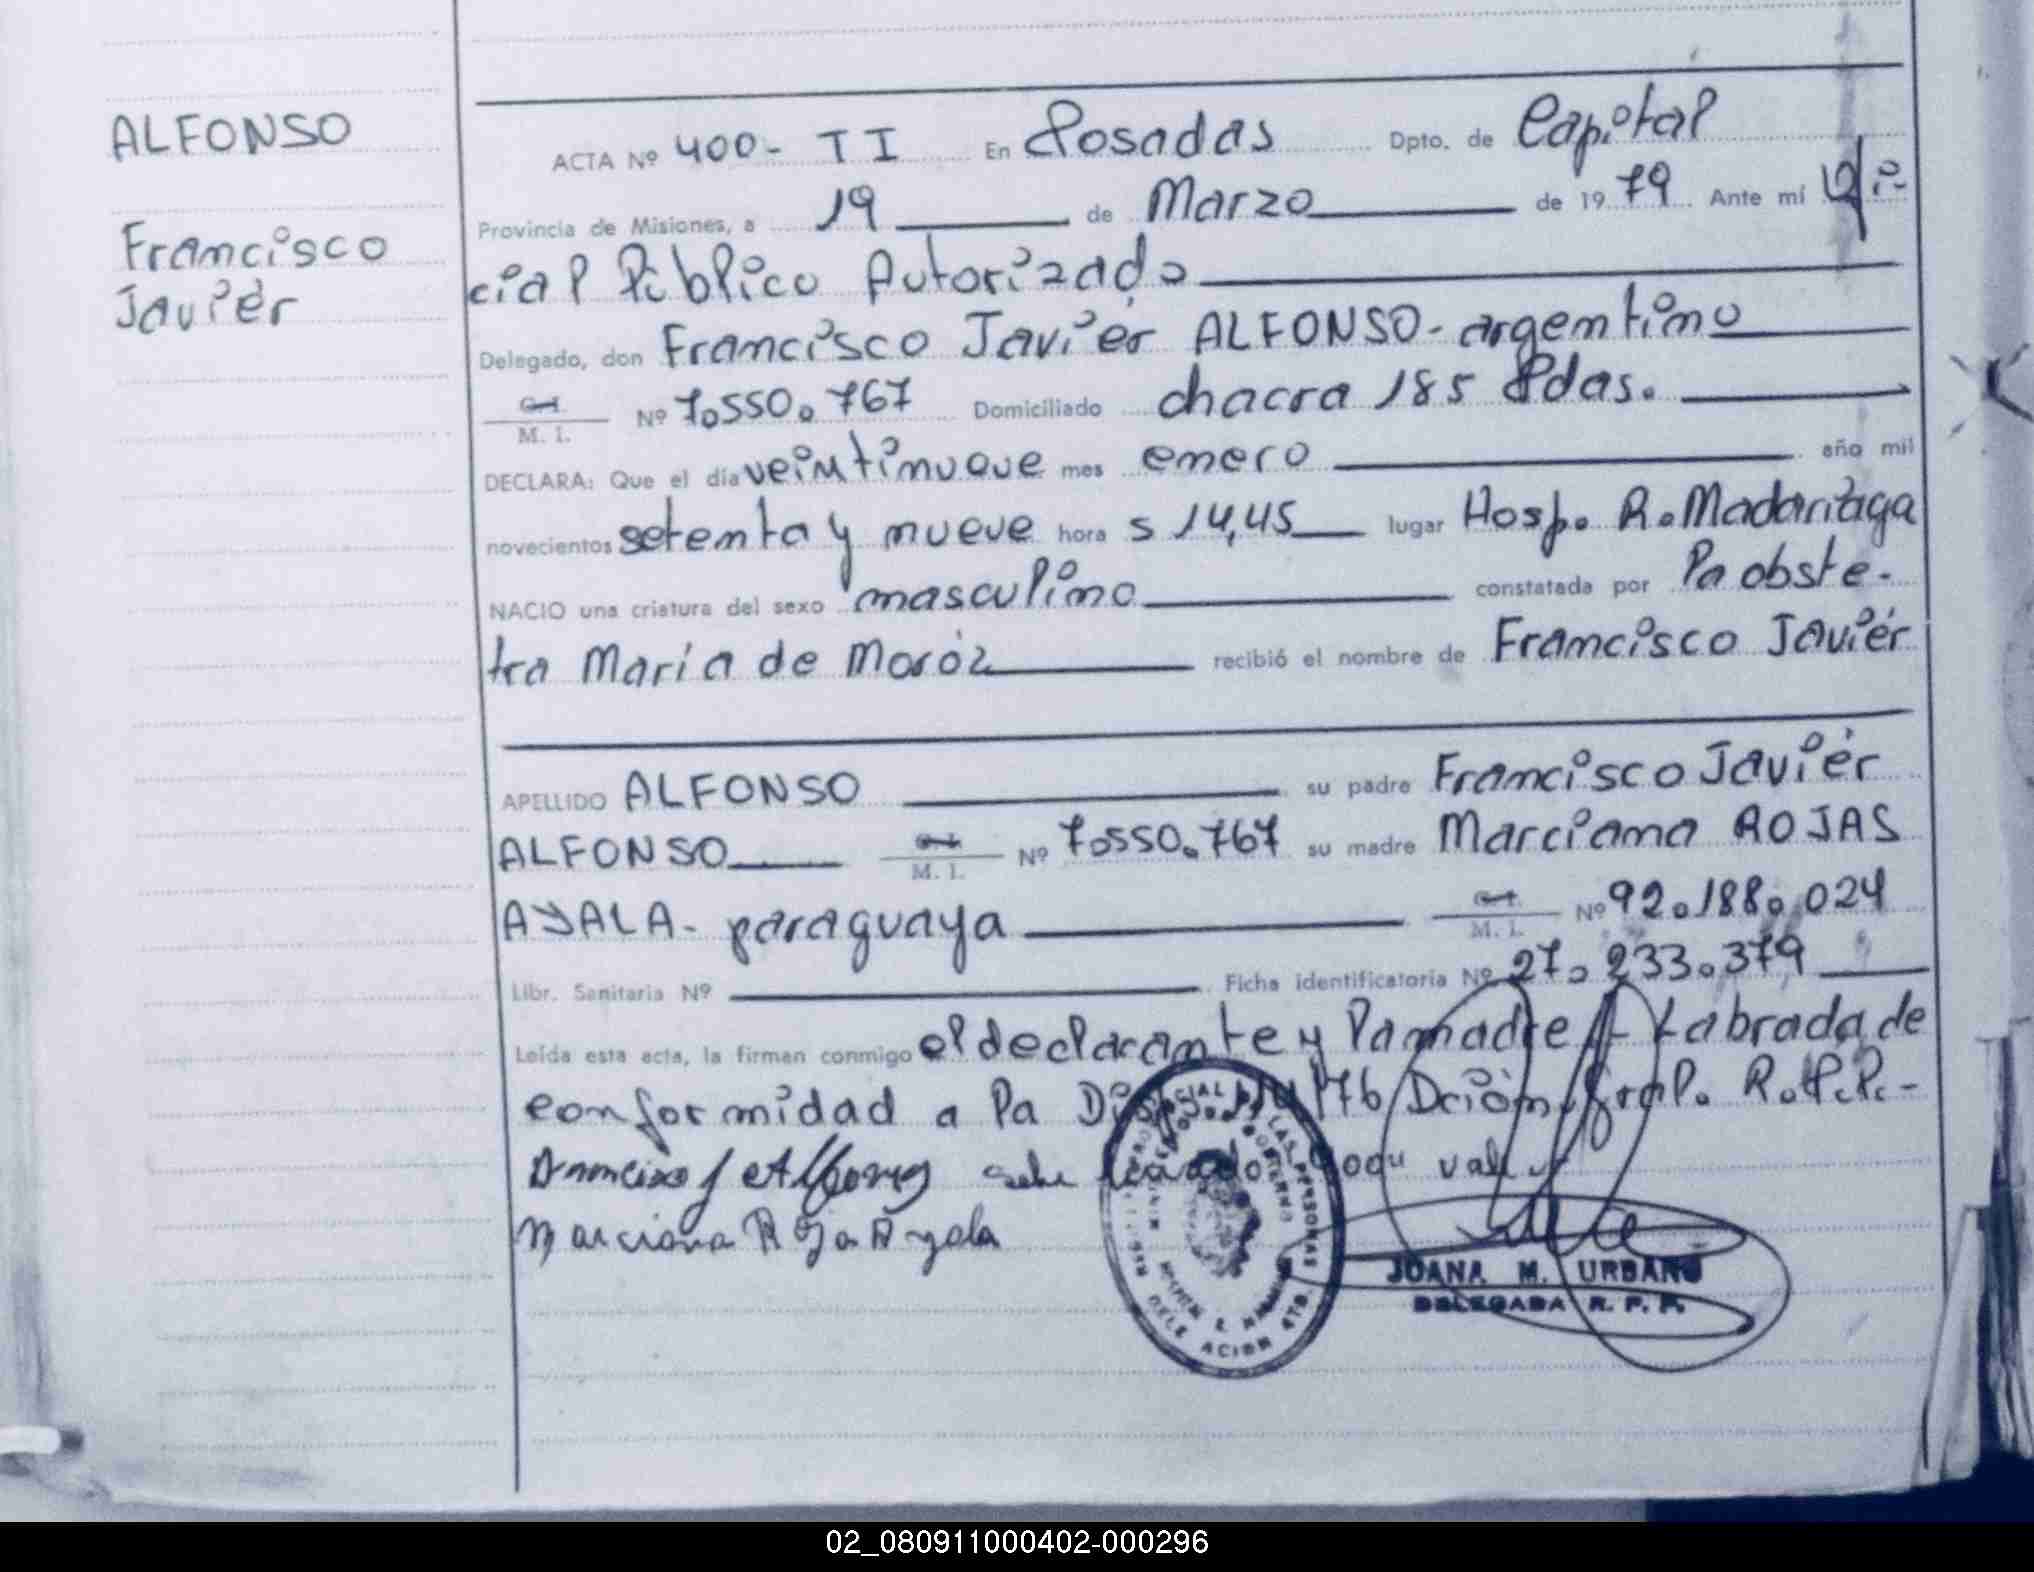 ALFONSO
Francisco
Javier
ACTA Nº 400- T I En Posadas Dpto. de Capital
Provincia de Misiones, a 19 de Marzo de 1979 Ante mí Ofi-
cial Público Autorizado
Delegado, don Francisco Javier ALFONSO- argentino
M. I. Nº 7.550.767 Domiciliado chacra 185 Pdas.
DECLARA: Que el día veintinueve mes enero año mil
novecientos setenta y nueve hora s 14,45 lugar Hosp. R. Madariaga
NACIO una criatura del sexo masculino constatada por la obste-
tra María de Moróz recibió el nombre de Francisco Javier
APELLIDO ALFONSO su padre Francisco Javier
ALFONSO M. I. Nº 7.550.767 su madre Marciana ROJAS
AYALA- paraguaya M. I. Nº 92.188.024
Libr. Sanitaria Nº Ficha identificatoria Nº 27.233.379
Leída esta acta, la firman conmigo el declarante y la madre - Labrada de
conformidad a la /76 Dción. Gral. R.P.P.-
Marciana Ayala
JUANA M. URBANO
DELEGADA R. P. P.
02_080911000402-000296